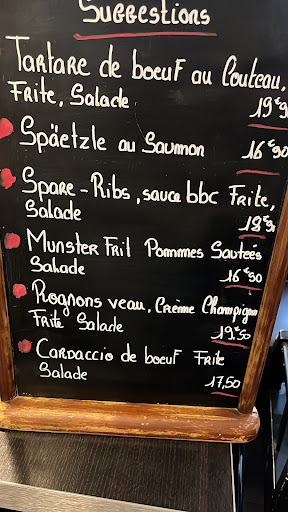 Suggestions
Tartare de boeuf au Couteau,
Frite, Salade
19€90
Späetzle au Saumon 16€90
Spare-Ribs, sauce bbc Frite,
Salade
18€90
Munster Frit Pommmes Sautées
Salade
16€90
Rognons veau, Crème Champignon
Frite Salade
19,50
Carpaccio de boeuf Frite
Salade
17,50